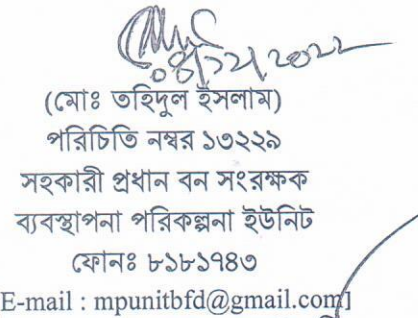 (মোঃ তহিদুল ইসলাম)
পরিচিতি নম্বর ১৩২২৯
সহকারী প্রধান বন সংরক্ষক
ব্যবস্থাপনা পরিকল্পনা ইউনিট
ফোনঃ ৮১৮১৭৪৩
E-mail : mpunitbfd@gmail.com]